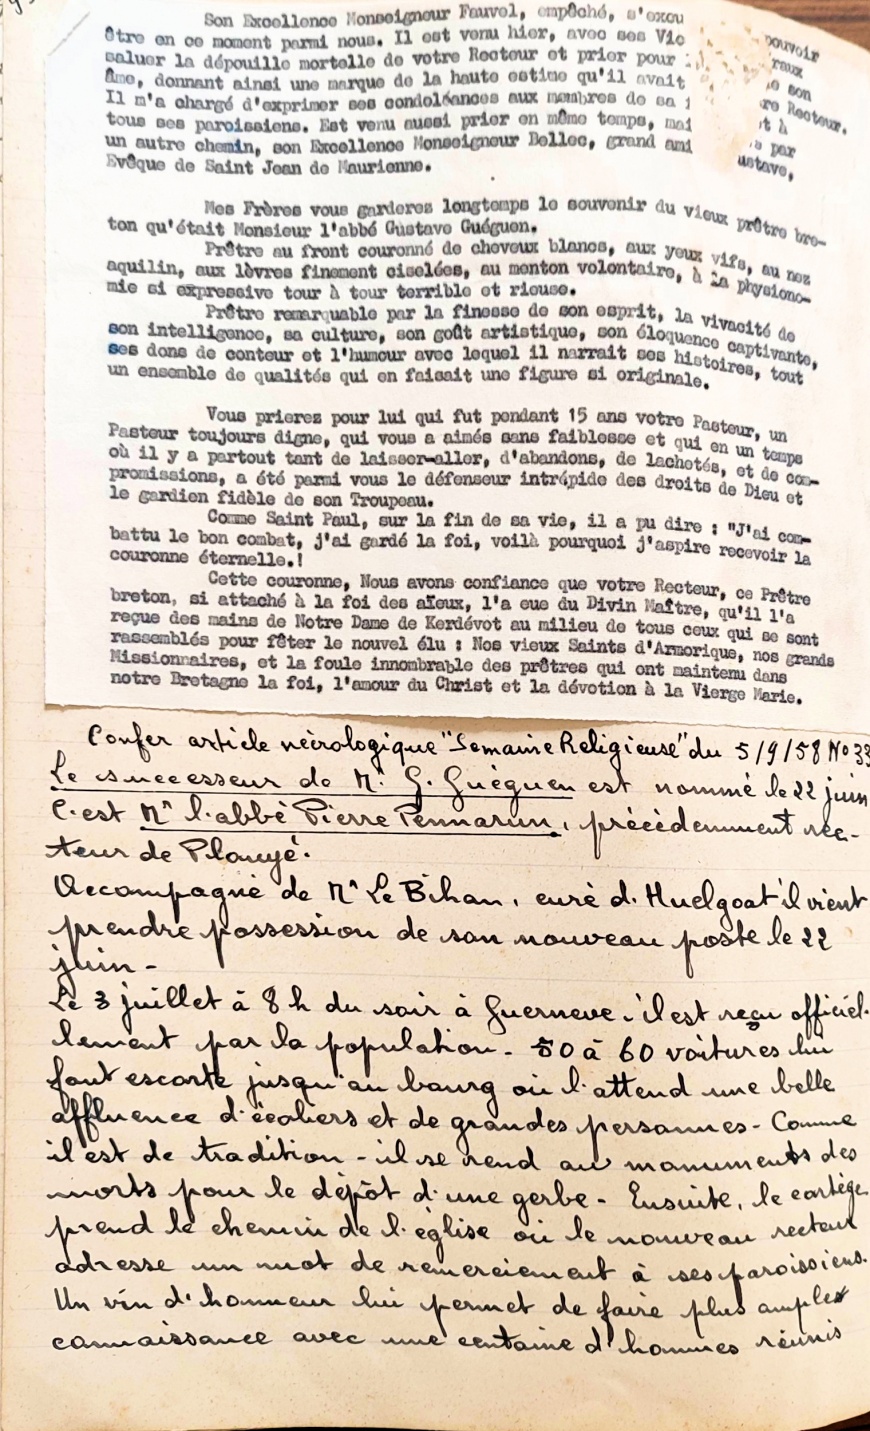 Son Excellence Monseigneur Fauvel, empêché, s'excu pouvoir
être en ce moment parmi nous. Il est venu hier, avec ses Vic raux
saluer la dépouille mortelle de votre Recteur et prier pour son
âme, donnant ainsi une marque de la haute estime qu'il avait re Recteur.
Il m'a chargé d'exprimer ses condoléances aux membres de sa t à
tous ses paroissiens. Est venu aussi prier en même temps, mai s par
un autre chemin, son Excellence Monseigneur Bellec, grand ami ustave,
Evêque de Saint Jean de Maurienne.
Mes Frères vous garderez longtemps le souvenir du vieux prêtre bre-
ton qu'était Monsieur l'abbé Gustave Guéguen.
Prêtre au front couronné de cheveux blancs, aux yeux vifs, au nez
aquilin, aux lèvres finement ciselées, au menton volontaire, à la physiono-
mie si expressive tour à tour terrible et rieuse.
Prêtre remarquable par la finesse de son esprit, la vivacité de
son intelligence, sa culture, son goût artistique, son éloquence captivante,
ses dons de conteur et l'humour avec lequel il narrait ses histoires, tout
un ensemble de qualités qui en faisait une figure si originale.
Vous prierez pour lui qui fut pendant 15 ans votre Pasteur, un
Pasteur toujours digne, qui vous a aimés sans faiblesse et qui en un temps
où il y a partout tant de laisser-aller, d'abandons, de lachetés, et de com-
promissions, a été parmi vous le défenseur intrépide des droits de Dieu et
le gardien fidèle de son Troupeau.
Comme Saint Paul, sur la fin de sa vie, il a pu dire : "J'ai com-
battu le bon combat, j'ai gardé la foi, voilà pourquoi j'aspire recevoir la
couronne éternelle.!
Cette couronne, Nous avons confiance que votre Recteur, ce Prêtre
breton, si attaché à la foi des aïeux, l'a eue du Divin Maître, qu'il l'a
reçue des mains de Notre Dame de Kerdévot au milieu de tous ceux qui se sont
rassemblés pour fêter le nouvel élu : Nos vieux Saints d'Armorique, nos grands
Missionnaires, et la foule innombrable des prêtres qui ont maintenu dans
notre Bretagne la foi, l'amour du Christ et la dévotion à la Vierge Marie.
Confer article nécrologique "Semaine Religieuse" du 5/9/58 No 33
Le successeur de Mr G. Guéguen est nommé le 22 juin
C'est Mr l'abbé Pierre Pennarun, précédemment rec-
teur de Plouyé.
Accompagné de Mr Le Bihan, curé d'Huelgoat il vient
prendre possession de son nouveau poste le 22
juin -
Le 3 juillet à 8 h du soir à Guerneve, il est reçu officiel-
lement par la population - 50 à 60 voitures lui
font escorte jusqu'au bourg où l'attend une belle
affluence d'écoliers et de grandes personnes - Comme
il est de tradition - il se rend au monuments des
morts pour le dépôt d'une gerbe - Ensuite, le cortège
prend le chemin de l'église où le nouveau recteur
adresse un mot de remerciement à ses paroissiens.
Un vin d'honneur lui permet de faire plus ample
connaissance avec une centaine d'hommes réunis